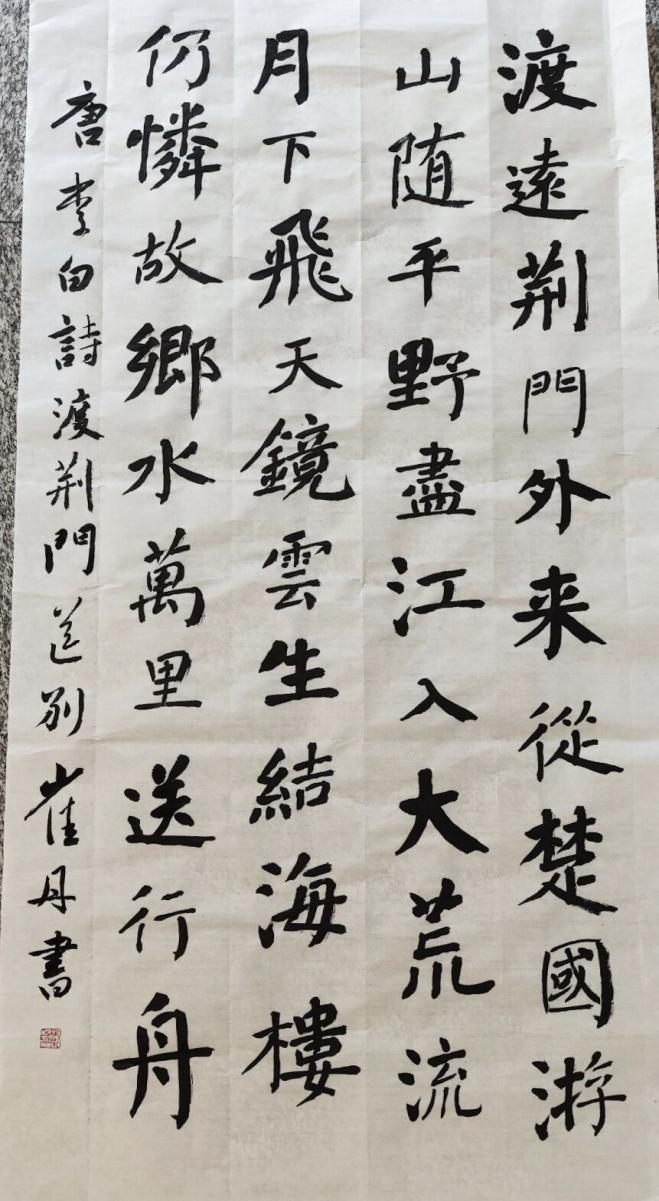 渡遠荆門外来從楚國游
山随平野盡江入大荒流
月下飛天鏡雲生結海樓
仍憐故鄉水萬里送行舟
唐李白詩渡荆門送别崔丹書